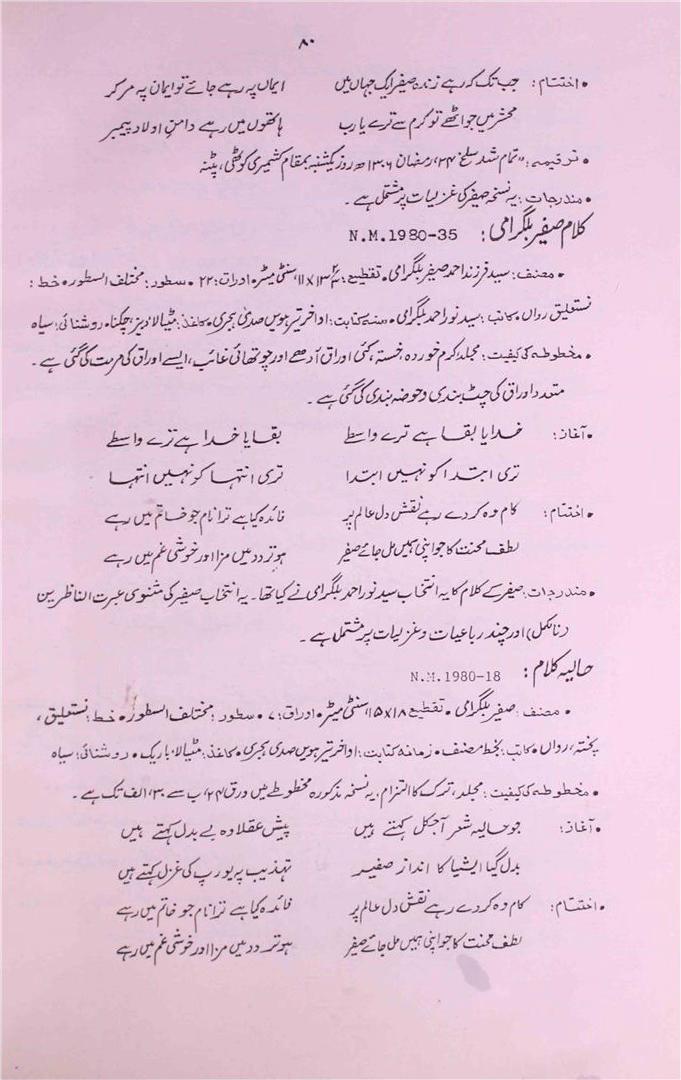 ۸۰
• اختتام: جب تک کہ رہے زندہ صفیر ایک جہاں میں ایماں پہ رہے جائے تو ایمان پہ مر کر
محشر میں جو اٹھے تو کرم سے ترے یا رب ہاتھوں میں رہے دامنِ اولادِ پیمبر
• ترقیمہ: "تمام شد سلخ ۲۴، رمضان ۱۳۰۶ھ روز یکشنبہ بمقام کشمیری کوٹھی، پٹنہ
• مندرجات: یہ نسخہ صفیر کی غزلیات پر مشتمل ہے۔
کلام صفیر بلگرامی: N.M.1980-35
• مصنف: سید فرزند احمد صفیر بلگرامی • تقطیع: سنٹی میٹر • اوراق: ۲۲ • سطور: مختلف السطور • خط:
نستعلیق رواں • کاتب: سید نور احمد بلگرامی • سنہ کتابت: اواخر تیرہویں صدی ہجری • کاغذ: مٹیالا دبیز، چکنا • روشنائی: سیاہ
• مخطوطہ کی کیفیت: مجلد، کرم خوردہ، خستہ، کئی اوراق آدھے اور چوتھائی غائب، ایسے اوراق کی مرمت کی گئی ہے۔
متعدد اوراق کی چٹ بندی و حوضہ بندی کی گئی ہے۔
• آغاز: خدایا بقا ہے ترے واسطے بقایا خدا ہے ترے واسطے
تری ابتدا کو نہیں ابتدا تری انتہا کو نہیں انتہا
• اختتام: کام وہ کر دے رہے نقش دل عالم پر فائدہ کیا ہے ترا نام جو خاتم میں رہے
لطف محنت کا جو اپنی ہمیں مل جائے صفیر ہو تردد میں مزا اور خوشی غم میں رہے
• مندرجات: صفیر کے کلام کا یہ انتخاب سید نور احمد بلگرامی نے کیا تھا۔ یہ انتخاب صفیر کی مثنوی عبرت الناظرین
(نامکمل) اور چند رباعیات و غزلیات پر مشتمل ہے۔
حالیہ کلام: N.M.1980-18
• مصنف: صفیر بلگرامی • تقطیع ۱۵x۱۸، سنٹی میٹر • اوراق: ۷ • سطور: مختلف السطور • خط: نستعلیق،
پختہ، رواں • کاتب: بخط مصنف • زمانہ کتابت: اواخر تیرہویں صدی ہجری • کاغذ: مٹیالا، باریک • روشنائی: سیاہ
• مخطوطہ کی کیفیت: مجلد، ترک کا التزام، یہ نسخہ مذکورہ مخطوطے میں ورق ۲۴، ب سے ۳۰، الف تک ہے۔
• آغاز: جو حالیہ شعر آجکل کہتے ہیں پیش عقلا وہ بے بدل کہتے ہیں
بدل گیا ایشیا کا انداز صفیر تہذیب پر یورپ کی غزل کہتے ہیں
• اختتام: کام وہ کر دے رہے نقش دل عالم پر فائدہ کیا ہے ترا نام جو خاتم میں رہے
لطف محنت کا جو اپنی ہمیں مل جائے صفیر ہو تردد میں مزا اور خوشی غم میں رہے